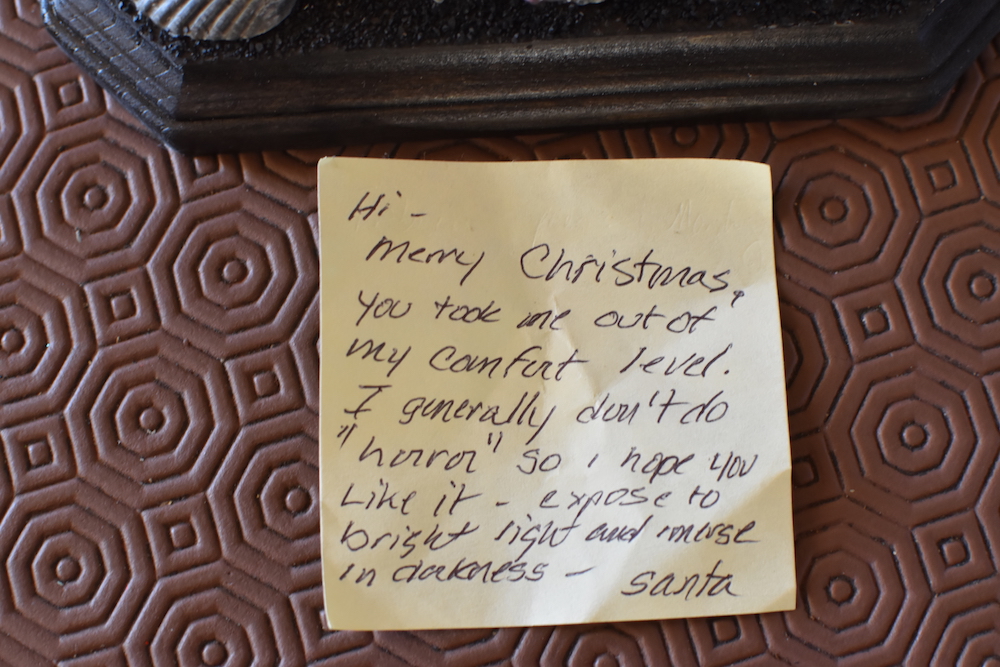 Hi -
Merry Christmas,
you took me out of
my comfort level.
I generally don't do
"horror" so i hope you
Like it - expose to
bright light and imerse
in darkness - santa